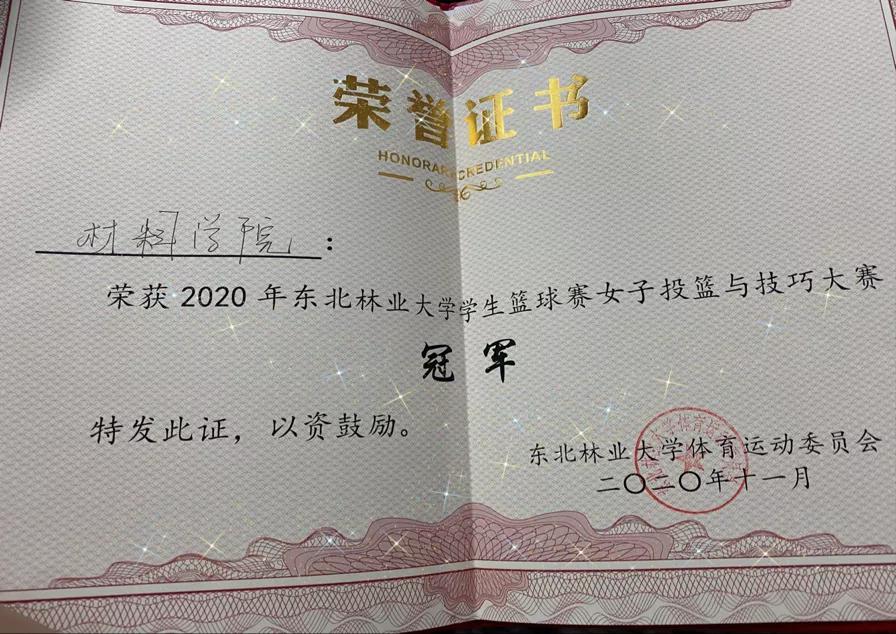 荣誉证书
HONORARY CREDENTIAL
材料学院：
荣获2020年东北林业大学学生篮球赛女子投篮与技巧大赛
冠军
特发此证，以资鼓励。
东北林业大学体育运动委员会
二〇二〇年十一月